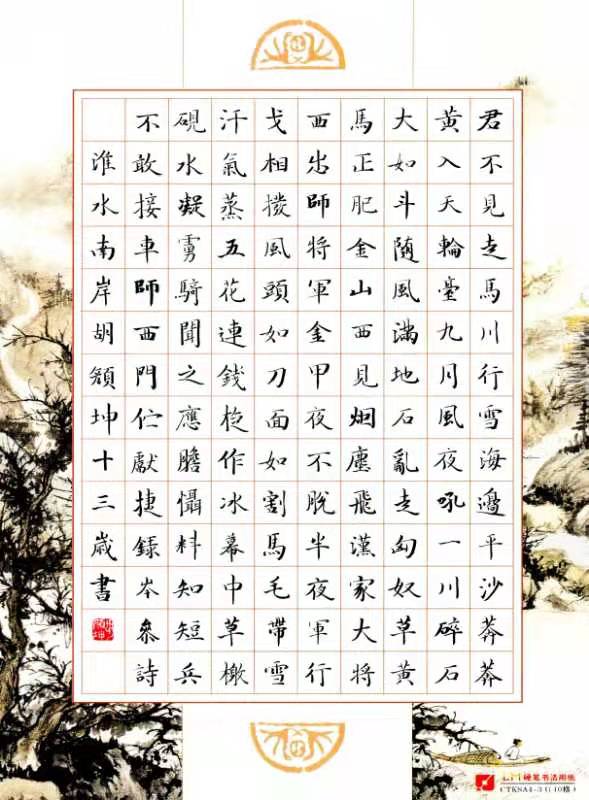 君不見走馬川行雪海邊平沙莽莽
黃入天輪臺九月風夜吼一川碎石
大如斗隨風滿地石亂走匈奴草黃
馬正肥金山西見烟塵飛漢家大將
西出師將軍金甲夜不脫半夜軍行
戈相撥風頭如刀面如割馬毛帶雪
汗氣蒸五花連錢旋作冰幕中草檄
硯水凝虜騎聞之應膽懾料知短兵
不敢接車師西門伫獻捷錄岑參詩
淮水南岸胡穎坤十三歲書
硬笔书法用纸